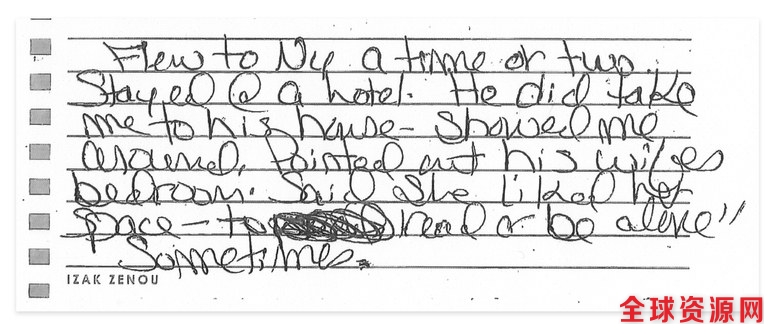 Flew to Ny a time or two.
Stayed @ a hotel. He did take
me to his house - showed me
around. Pointed out his wifes
bedroom. Said she liked her
space - to read or be alone"
Sometimes.
IZAK ZENOU
全球资源网